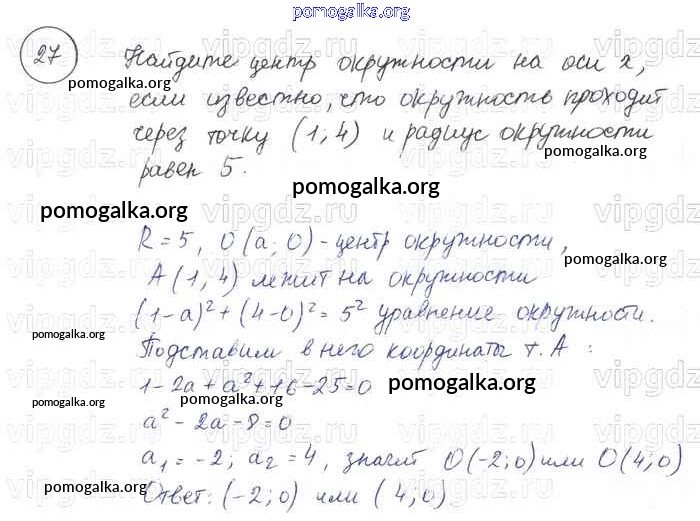 pomogalka.org
27 Найдите центр окружности на оси x,
pomogalka.org
если известно, что окружность проходит
через точку (1,4) и радиус окружности
pomogalka.org
равен 5.
pomogalka.org
pomogalka.org
R = 5, O(a; O) - центр окружности,
pomogalka.org
A(1,4) лежит на окружности
(1-a)² + (4-0)² = 5² уравнение окружности.
pomogalka.org
Подставим в него координаты т. A:
1-2a+a²+16-25=0
pomogalka.org
pomogalka.org
a² - 2a - 8 = 0
pomogalka.org
a₁ = -2; a₂ = 4, значит O(-2;0) или O(4;0)
pomogalka.org
Ответ: (-2;0) или (4;0)